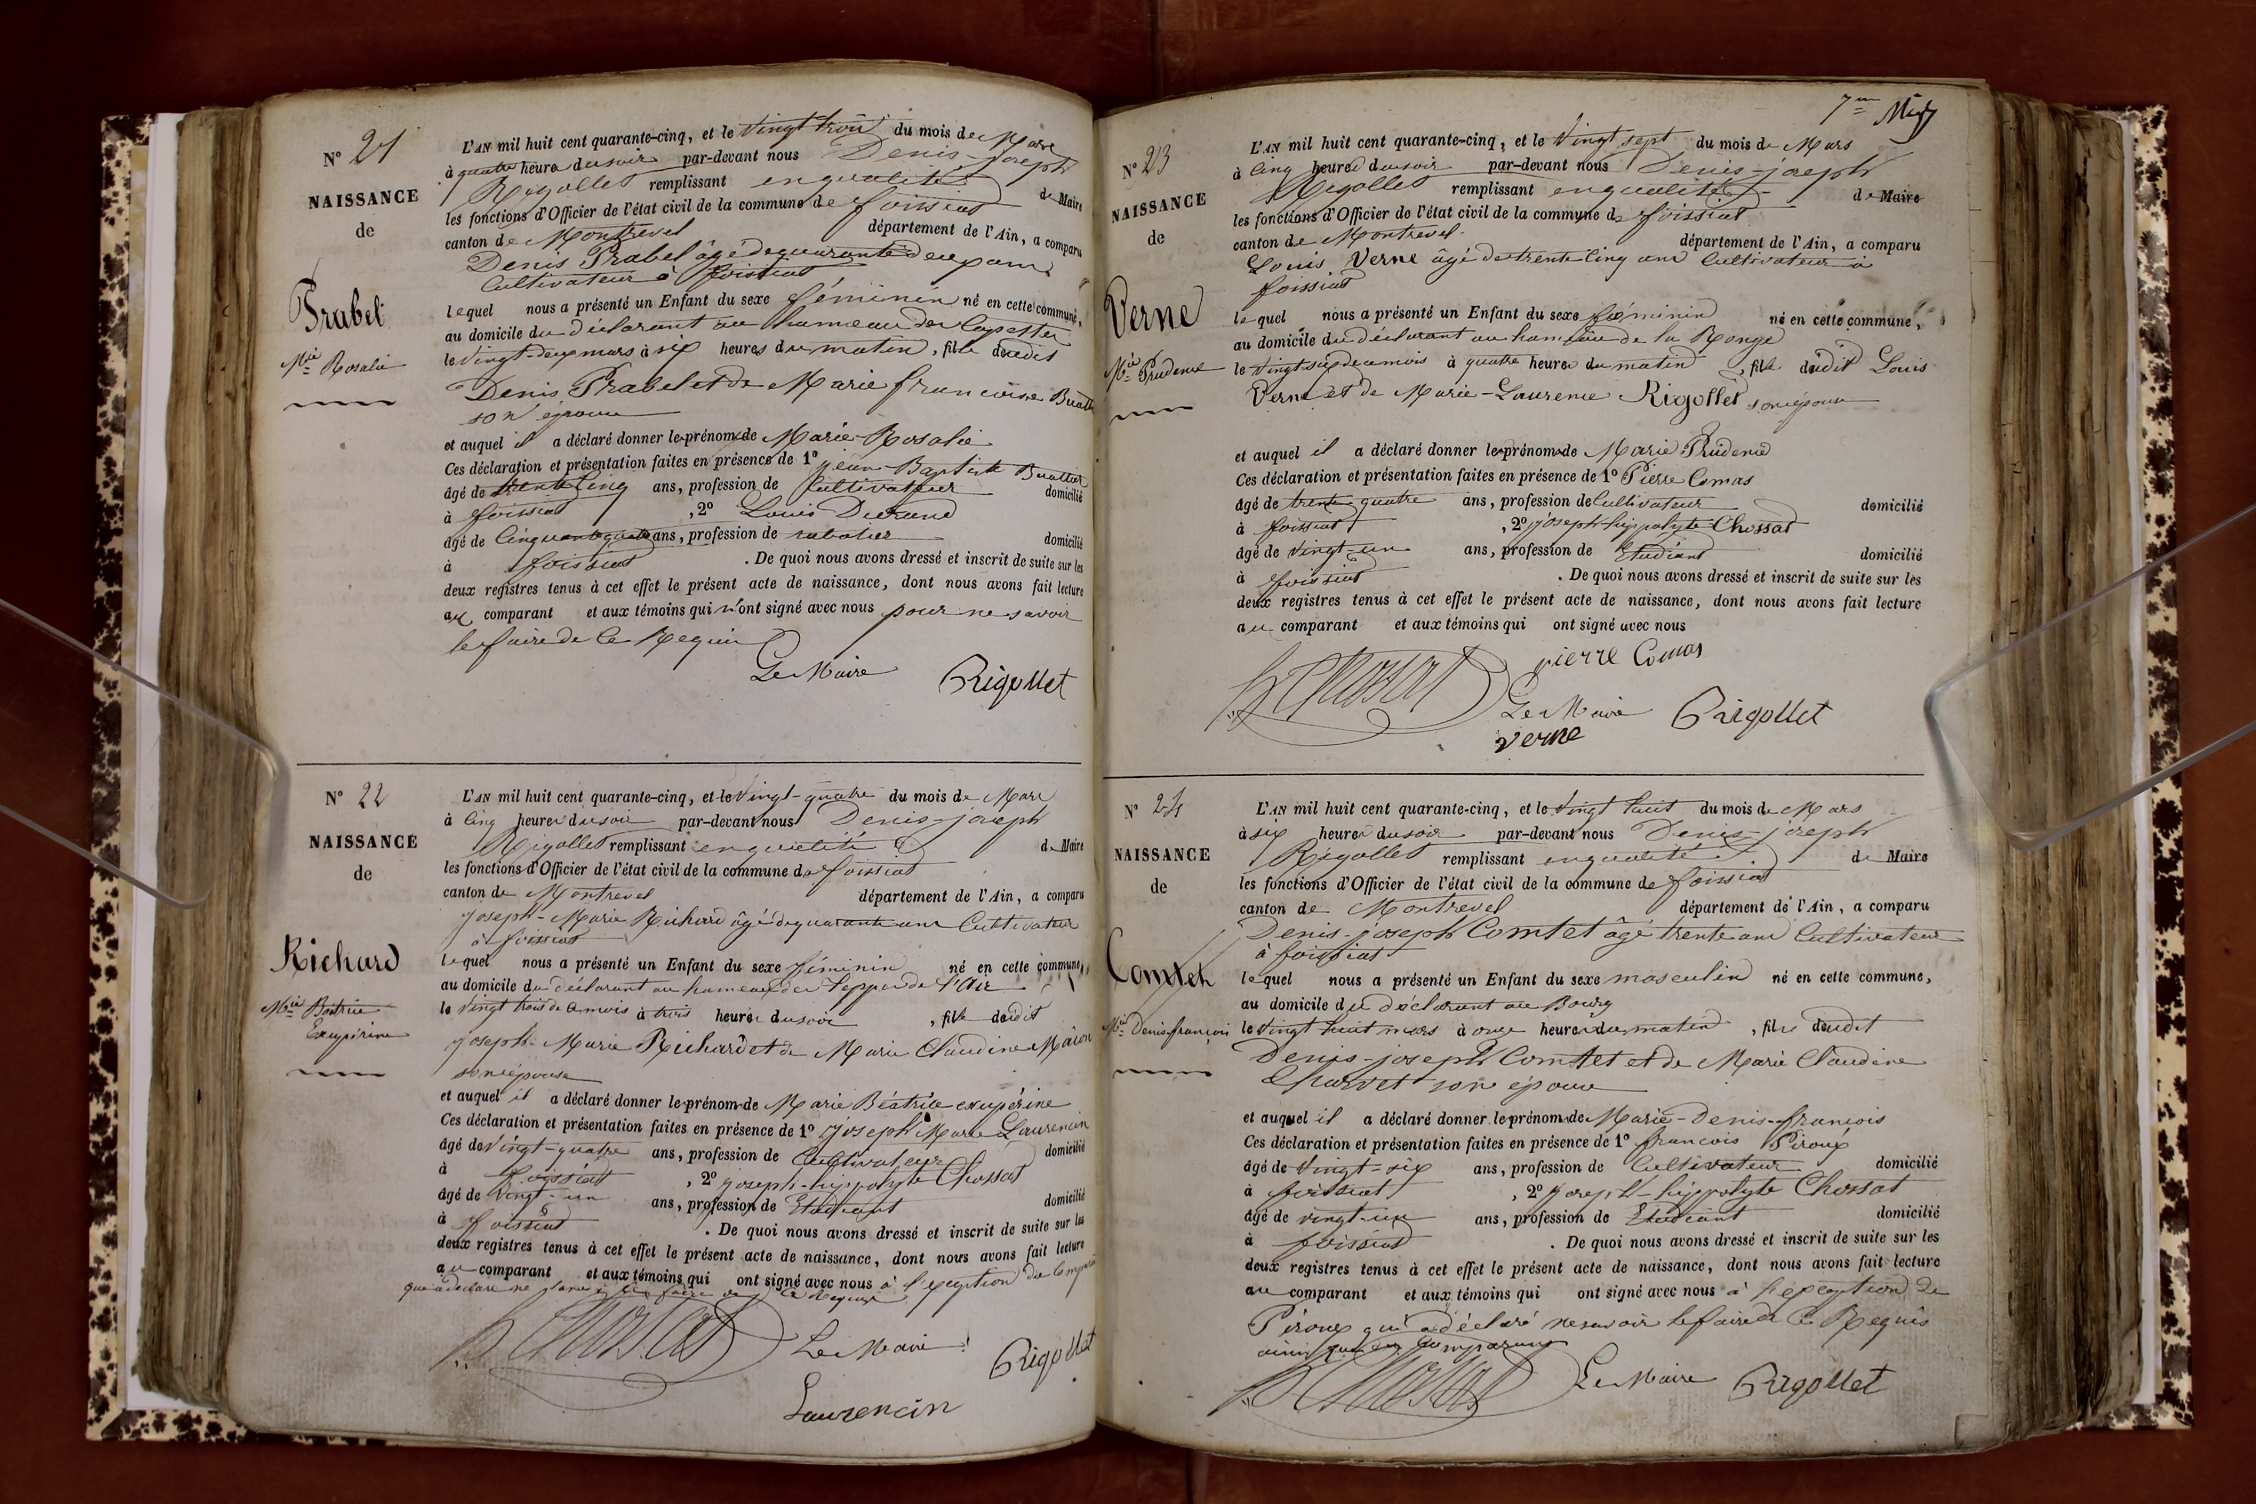 N° 21
NAISSANCE
de
Prabel
Mie Rosalie
L'AN mil huit cent quarante-cinq, et le vingt trois du mois de Mars
à quatre heures du soir par-devant nous Denis-joseph
Rigollet remplissant en qualité de Maire
les fonctions d'Officier de l'état civil de la commune de foissiat
canton de Montrevel département de l'Ain, a comparu
Denis Prabel âgé de quarante deux ans
Cultivateur à foissiat
lequel nous a présenté un Enfant du sexe féminin né en cette commune,
au domicile du déclarant au hameau des
le vingt-deux mars à six heures du matin, fille dudit
Denis Prabel et de Marie françoise
son épouse
et auquel il a déclaré donner les prénoms de Marie-Rosalie
Ces déclaration et présentation faites en présence de 1° jean-Baptiste Buattier
âgé de trente cinq ans, profession de Cultivateur domicilié
à foissiat, 2° Louis Durand
âgé de Cinquante quatre ans, profession de sabotier domicilié
à foissiat. De quoi nous avons dressé et inscrit de suite sur les
deux registres tenus à cet effet le présent acte de naissance, dont nous avons fait lecture
au comparant et aux témoins qui n'ont signé avec nous pour ne savoir
le faire de ce Requis
Le Maire Rigollet
N° 22
NAISSANCE
de
Richard
Mie Béatrice
Exupérine
L'AN mil huit cent quarante-cinq, et le vingt-quatre du mois de Mars
à cinq heures du soir par-devant nous Denis-joseph
Rigollet remplissant en qualité de Maire
les fonctions d'Officier de l'état civil de la commune de foissiat
canton de Montrevel département de l'Ain, a comparu
joseph-Marie Richard âgé de quarante ans Cultivateur
à foissiat
lequel nous a présenté un Enfant du sexe féminin né en cette commune,
au domicile du déclarant au hameau
le vingt trois de ce mois à trois heures du soir, fille dudit
joseph-Marie Richard et de Marie Claudine
son épouse
et auquel il a déclaré donner les prénoms de Marie Béatrice exupérine
Ces déclaration et présentation faites en présence de 1° joseph Marie Laurencin
âgé de vingt-quatre ans, profession de Cultivateur domicilié
à foissiat, 2° joseph-hyppolyte Chossat
âgé de vingt-un ans, profession de Etudiant domicilié
à foissiat. De quoi nous avons dressé et inscrit de suite sur les
deux registres tenus à cet effet le présent acte de naissance, dont nous avons fait lecture
au comparant et aux témoins qui ont signé avec nous à l'exception du comparant
qui a déclaré ne savoir le faire de ce Requis
h Chossat Le Maire Rigollet
Laurencin
7me
N° 23
NAISSANCE
de
Verne
Mie Prudence
L'AN mil huit cent quarante-cinq, et le vingt sept du mois de Mars
à cinq heures du soir par-devant nous Denis-joseph
Rigollet remplissant en qualité de Maire
les fonctions d'Officier de l'état civil de la commune de foissiat
canton de Montrevel département de l'Ain, a comparu
Louis Verne âgé de trente cinq ans Cultivateur à
foissiat
lequel nous a présenté un Enfant du sexe féminin né en cette commune,
au domicile du déclarant au hameau de la Ronge
le vingt six de ce mois à quatre heures du matin, fille dudit Louis
Verne et de Marie-Laurence Rigollet son épouse
et auquel il a déclaré donner les prénoms de Marie Prudence
Ces déclaration et présentation faites en présence de 1° Pierre Comas
âgé de trente quatre ans, profession de Cultivateur domicilié
à foissiat, 2° joseph-hippolyte Chossat
âgé de vingt-un ans, profession de Etudiant domicilié
à foissiat. De quoi nous avons dressé et inscrit de suite sur les
deux registres tenus à cet effet le présent acte de naissance, dont nous avons fait lecture
au comparant et aux témoins qui ont signé avec nous
h Chossat pierre Comas
Le Maire Rigollet
verne
N° 24
NAISSANCE
de
Comtet
Mie Denis françois
L'AN mil huit cent quarante-cinq, et le vingt huit du mois de Mars
à six heures du soir par-devant nous Denis-joseph
Rigollet remplissant en qualité de Maire
les fonctions d'Officier de l'état civil de la commune de foissiat
canton de Montrevel département de l'Ain, a comparu
Denis-joseph Comtet âgé trente ans Cultivateur
à foissiat
lequel nous a présenté un Enfant du sexe masculin né en cette commune,
au domicile du déclarant au Bourg
le vingt huit mars à onze heures du matin, fils dudit
Denis-joseph Comtet et de Marie Claudine
Charvet son épouse
et auquel il a déclaré donner les prénoms de Marie-Denis-françois
Ces déclaration et présentation faites en présence de 1° francois Piroux
âgé de vingt-six ans, profession de Cultivateur domicilié
à foissiat, 2° joseph-hippolyte Chossat
âgé de vingt-un ans, profession de Etudiant domicilié
à foissiat. De quoi nous avons dressé et inscrit de suite sur les
deux registres tenus à cet effet le présent acte de naissance, dont nous avons fait lecture
au comparant et aux témoins qui ont signé avec nous à l'exception de
Piroux qui a déclaré ne savoir le faire de ce Requis
ainsi que le comparant
h Chossat Le Maire Rigollet